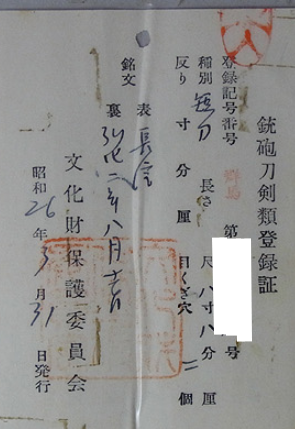 銃砲刀剣類登録証
登録記号番号 群馬 第 号
種別 短刀 長さ 尺 八寸八分 厘
反り 寸 分 厘 目くぎ穴 二 個
銘文 表 長信
裏 弘化二年八月 日
文化財保護委員会
昭和26年3月31日発行